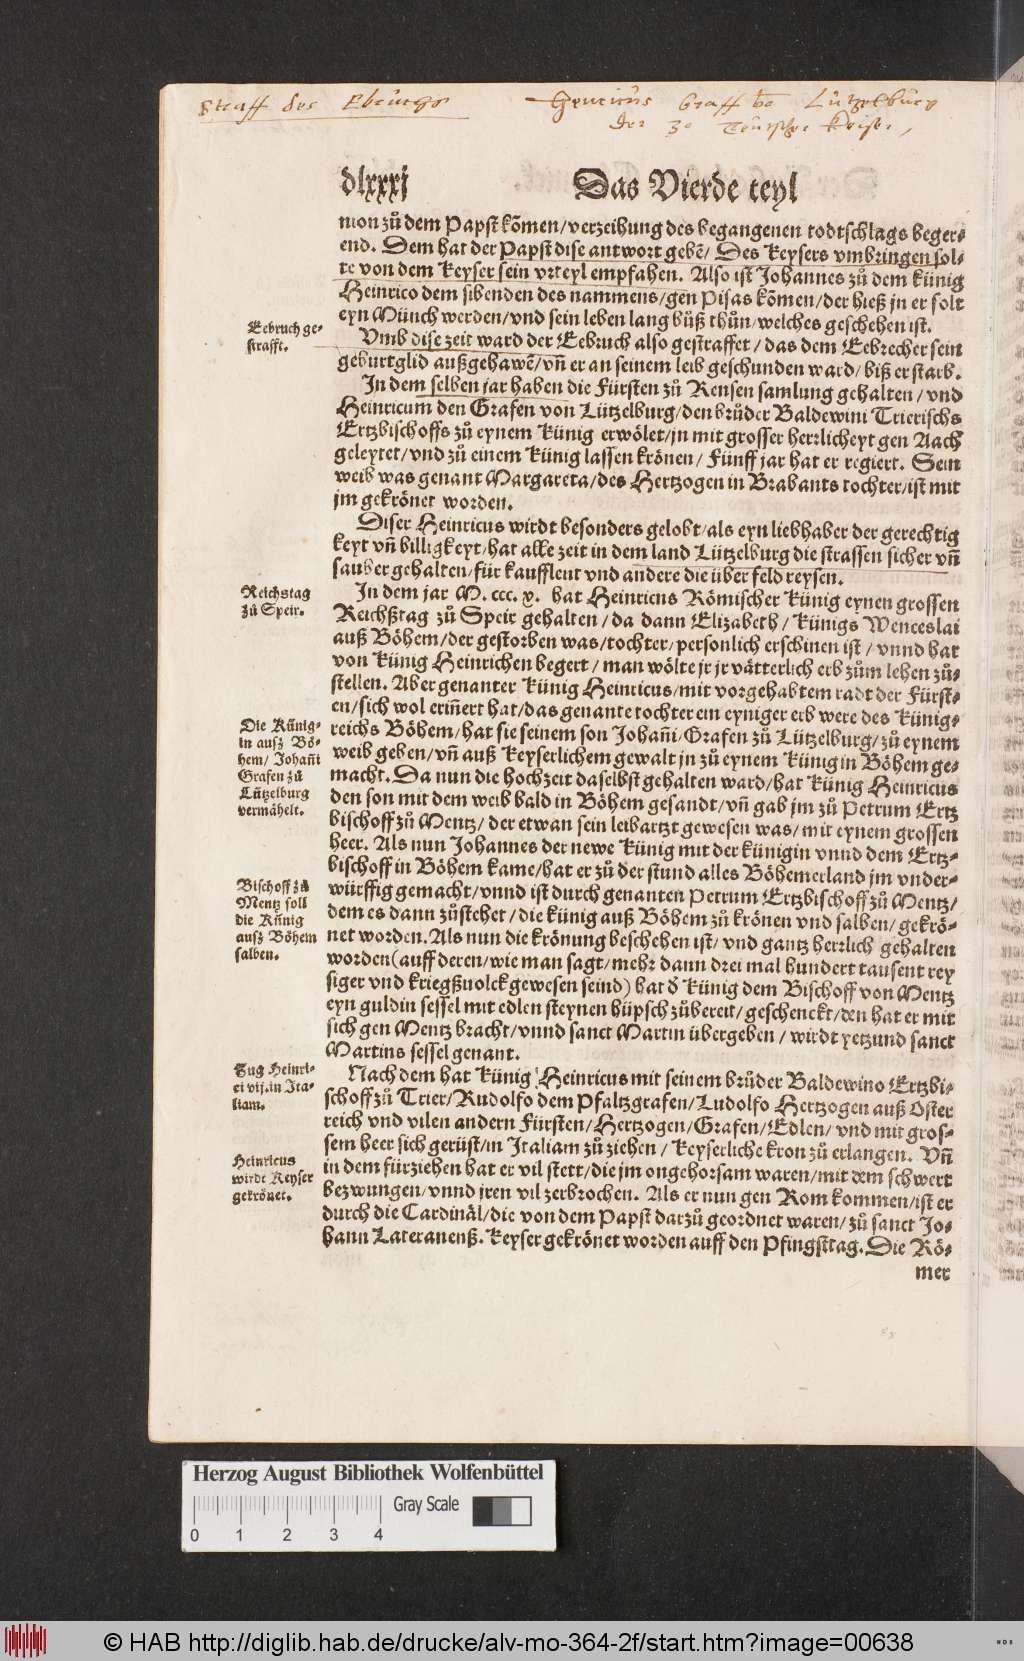 Straff des Ebruchs
Henricus Graff vo Lützelburg
der 30 Teutscher Keiser,
dlxxxj
Das Vierde teyl
mon zuͦ dem Papst kom̃en/verzeihung des begangenen todtschlags beger⸗
end. Dem hat der Papst dise antwort gebẽ/ Des Keysers vmbringen sol⸗
te von dem Keyser sein vrteyl empfahen. Also ist Johannes zuͦ dem künig
Heinrico dem sibenden des nammens/gen Pisas kom̃en/der hieß jn er solt
eyn Münch werden/vnd sein leben lang buͤß thuͦn/welches geschehen ist.
Eebruch ge⸗
strafft.
Vmb dise zeit ward der Eebruch also gestraffet/das dem Eebrecher sein
geburtglid außgehawẽ/vñ er an seinem leib geschunden ward/biß er starb.
In dem selben jar haben die Fürsten zuͦ Rensen samlung gehalten/vnd
Heinricum den Grafen von Lützelburg/den bruͦder Baldewini Trierischs
Ertzbischoffs zuͦ eynem Künig erwoͤlet/jn mit grosser herrlicheyt gen Aach
geleytet/vnd zuͦ einem Künig lassen kroͤnen/ Fünff jar hat er regiert. Sein
weib was genant Margareta/des Hertzogen in Brabants tochter/ist mit
jm gekroͤnet worden.
Diser Heinricus wirdt besonders gelobt/als eyn liebhaber der gerechtig
keyt vñ billigkeyt/hat alle zeit in dem land Lützelburg die strassen sicher vñ
sauber gehalten/für kauffleut vnd andere die über feld reysen.
Reichstag
zuͦ Speir.
In dem jar M. ccc. x. hat Heinricus Roͤmischer Künig eynen grossen
Reichßtag zuͦ Speir gehalten/da dann Elizabeth/Künigs Wenceslai
auß Boͤhem/der gestorben was/tochter/personlich erschinen ist/vnnd hat
von Künig Heinrichen begert/man woͤlte jr jr vaͤtterlich erb zuͦm lehen zuͦ⸗
stellen. Aber genanter Künig Heinricus/mit vorgehabtem radt der Fürst⸗
en/sich wol eriñert hat/das genante tochter ein eyniger erb were des Künig⸗
Die Künig⸗
in ausz Boͤ⸗
hem/ Johañi
Grafen zuͦ
Lützelburg
vermaͤhelt.
reichs Boͤhem/hat sie seinem son Johañi/Grafen zuͦ Lützelburg/zuͦ eynem
weib geben/vñ auß Keyserlichem gewalt jn zuͦ eynem Künig in Boͤhem ge⸗
macht. Da nun die hochzeit daselbst gehalten ward/hat Künig Heinricus
den son mit dem weib bald in Boͤhem gesandt/vñ gab jm zuͦ Petrum Ertz
bischoff zuͦ Mentz/ der etwan sein leibartzt gewesen was/mit eynem grossen
heer. Als nun Johannes der newe Künig mit der künigin vnnd dem Ertz⸗
bischoff in Boͤhem kame/hat er zuͦ der stund alles Boͤhemerland jm vnder⸗
Bischoff zuͦ
Mentz soll
die Künig
ausz Boͤhem
salben.
würffig gemacht/vnnd ist durch genanten Petrum Ertzbischoff zuͦ Mentz/
dem es dann zuͦstehet/die künig auß Boͤhem zuͦ kroͤnen vnd salben/gekroͤ⸗
net worden. Als nun die kroͤnung beschehen ist/vnd gantz herrlich gehalten
worden(auff deren/wie man sagt/mehr dann drei mal hundert tausent rey
siger vnd kriegßuolck gewesen seind) hat d̓ Künig dem Bischoff von Mentz
eyn guldin sessel mit edlen steynen hüpsch zuͦbereit/geschenckt/den hat er mit
sich gen Mentz bracht/vnnd sanct Martin übergeben/wirdt yetzund sanct
Martins sessel genant.
Zug Heinri⸗
ci vij.in Ita⸗
liam.
Nach dem hat Künig Heinricus mit seinem bruͦder Baldewino Ertzbi⸗
schoff zuͦ Trier/Rudolfo dem Pfaltzgrafen/Ludolfo Hertzogen auß Oster
reich vnd vilen andern Fürsten/Hertzogen/Grafen/Edlen/vnd mit gros⸗
sem heer sich gerüst/in Italiam zuͦ ziehen/ Keyserliche kron zuͦ erlangen. Vñ
Heinricus
wirdt Keyser
gekroͤnet.
in dem fürziehen hat er vil stett/die jm ongehorsam waren/mit dem schwert
bezwungen/vnnd jren vil zerbrochen. Als er nun gen Rom kommen/ist er
durch die Cardinaͤl/die von dem Papst darzuͦ geordnet waren/zuͦ sanct Jo⸗
hann Lateranenß. Keyser gekroͤnet worden auff den Pfingsttag. Die Roͤ⸗
mer
Herzog August Bibliothek Wolfenbüttel
Gray Scale
0 1 2 3 4
© HAB http://diglib.hab.de/drucke/alv-mo-364-2f/start.htm?image=00638